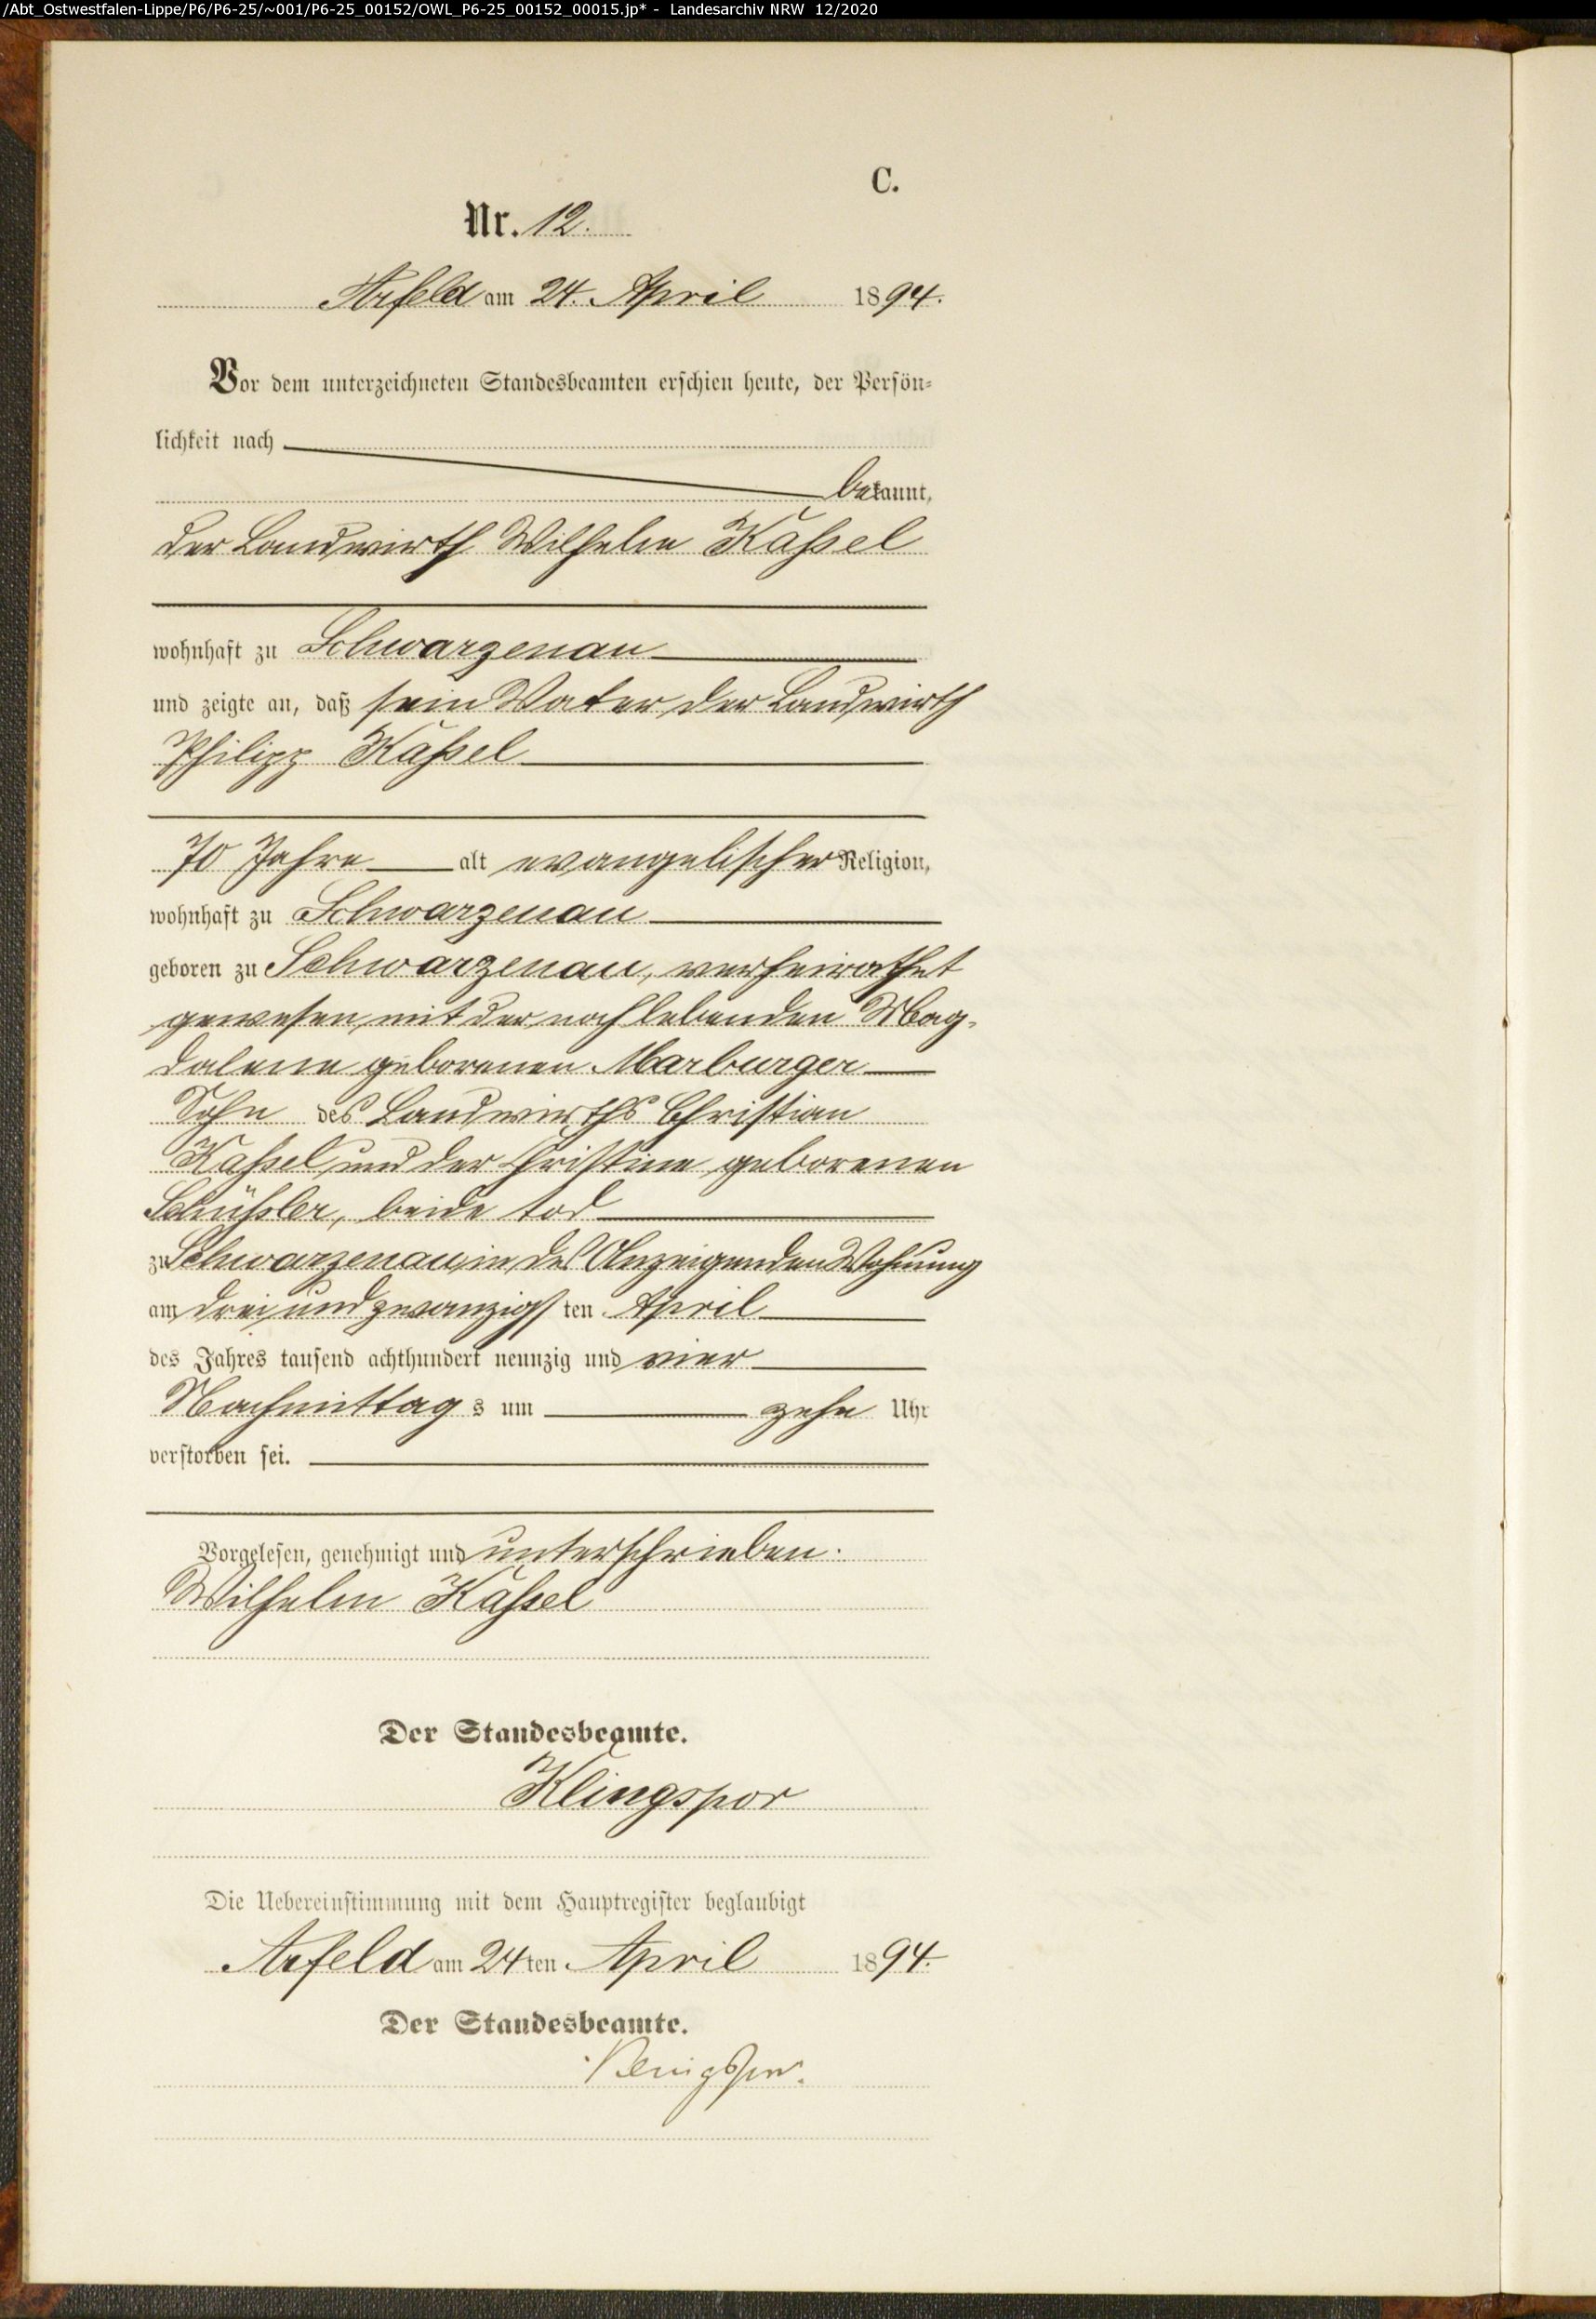 /Abt_Ostwestfalen-Lippe/P6/P6-25/~001/P6-25_00152/OWL_P6-25_00152_00015.jp* - Landesarchiv NRW 12/2020
C.
Nr. 12.
Arfeld am 24. April 1894.
Vor dem unterzeichneten Standesbeamten erschien heute, der Persön-
lichkeit nach
bekannt,
der Landwirth Wilhelm Kaßel
wohnhaft zu Schwarzenau
und zeigte an, daß sein Vater, der Landwirth
Philipp Kaßel
70 Jahre alt evangelischer Religion,
wohnhaft zu Schwarzenau
geboren zu Schwarzenau, verheirathet
gewesen mit der noch lebenden Mag-
dalene geborenen Marburger
Sohn des Landwirths Christian
Kaßel und der Christine geborenen
Schüßler, beide tod
zu Schwarzenau, in des Anzeigenden Wohnung
am drei und zwanzigsten April
des Jahres tausend achthundert neunzig und vier
Nachmittags um zehn Uhr
verstorben sei.
Vorgelesen, genehmigt und unterschrieben.
Wilhelm Kaßel
Der Standesbeamte.
Klingspor
Die Uebereinstimmung mit dem Hauptregister beglaubigt
Arfeld am 24ten April 1894.
Der Standesbeamte.
Klingspor.